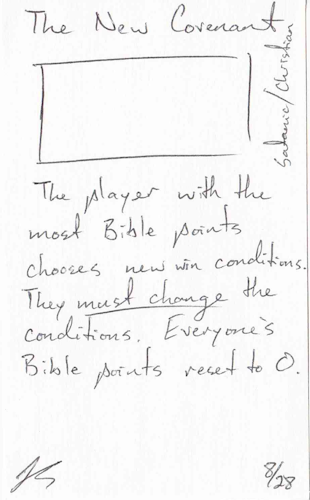 The New Covenant
Satanic/Christian
The player with the
most Bible points
chooses new win conditions.
They must change the
conditions. Everyone's
Bible points reset to 0.
8/28